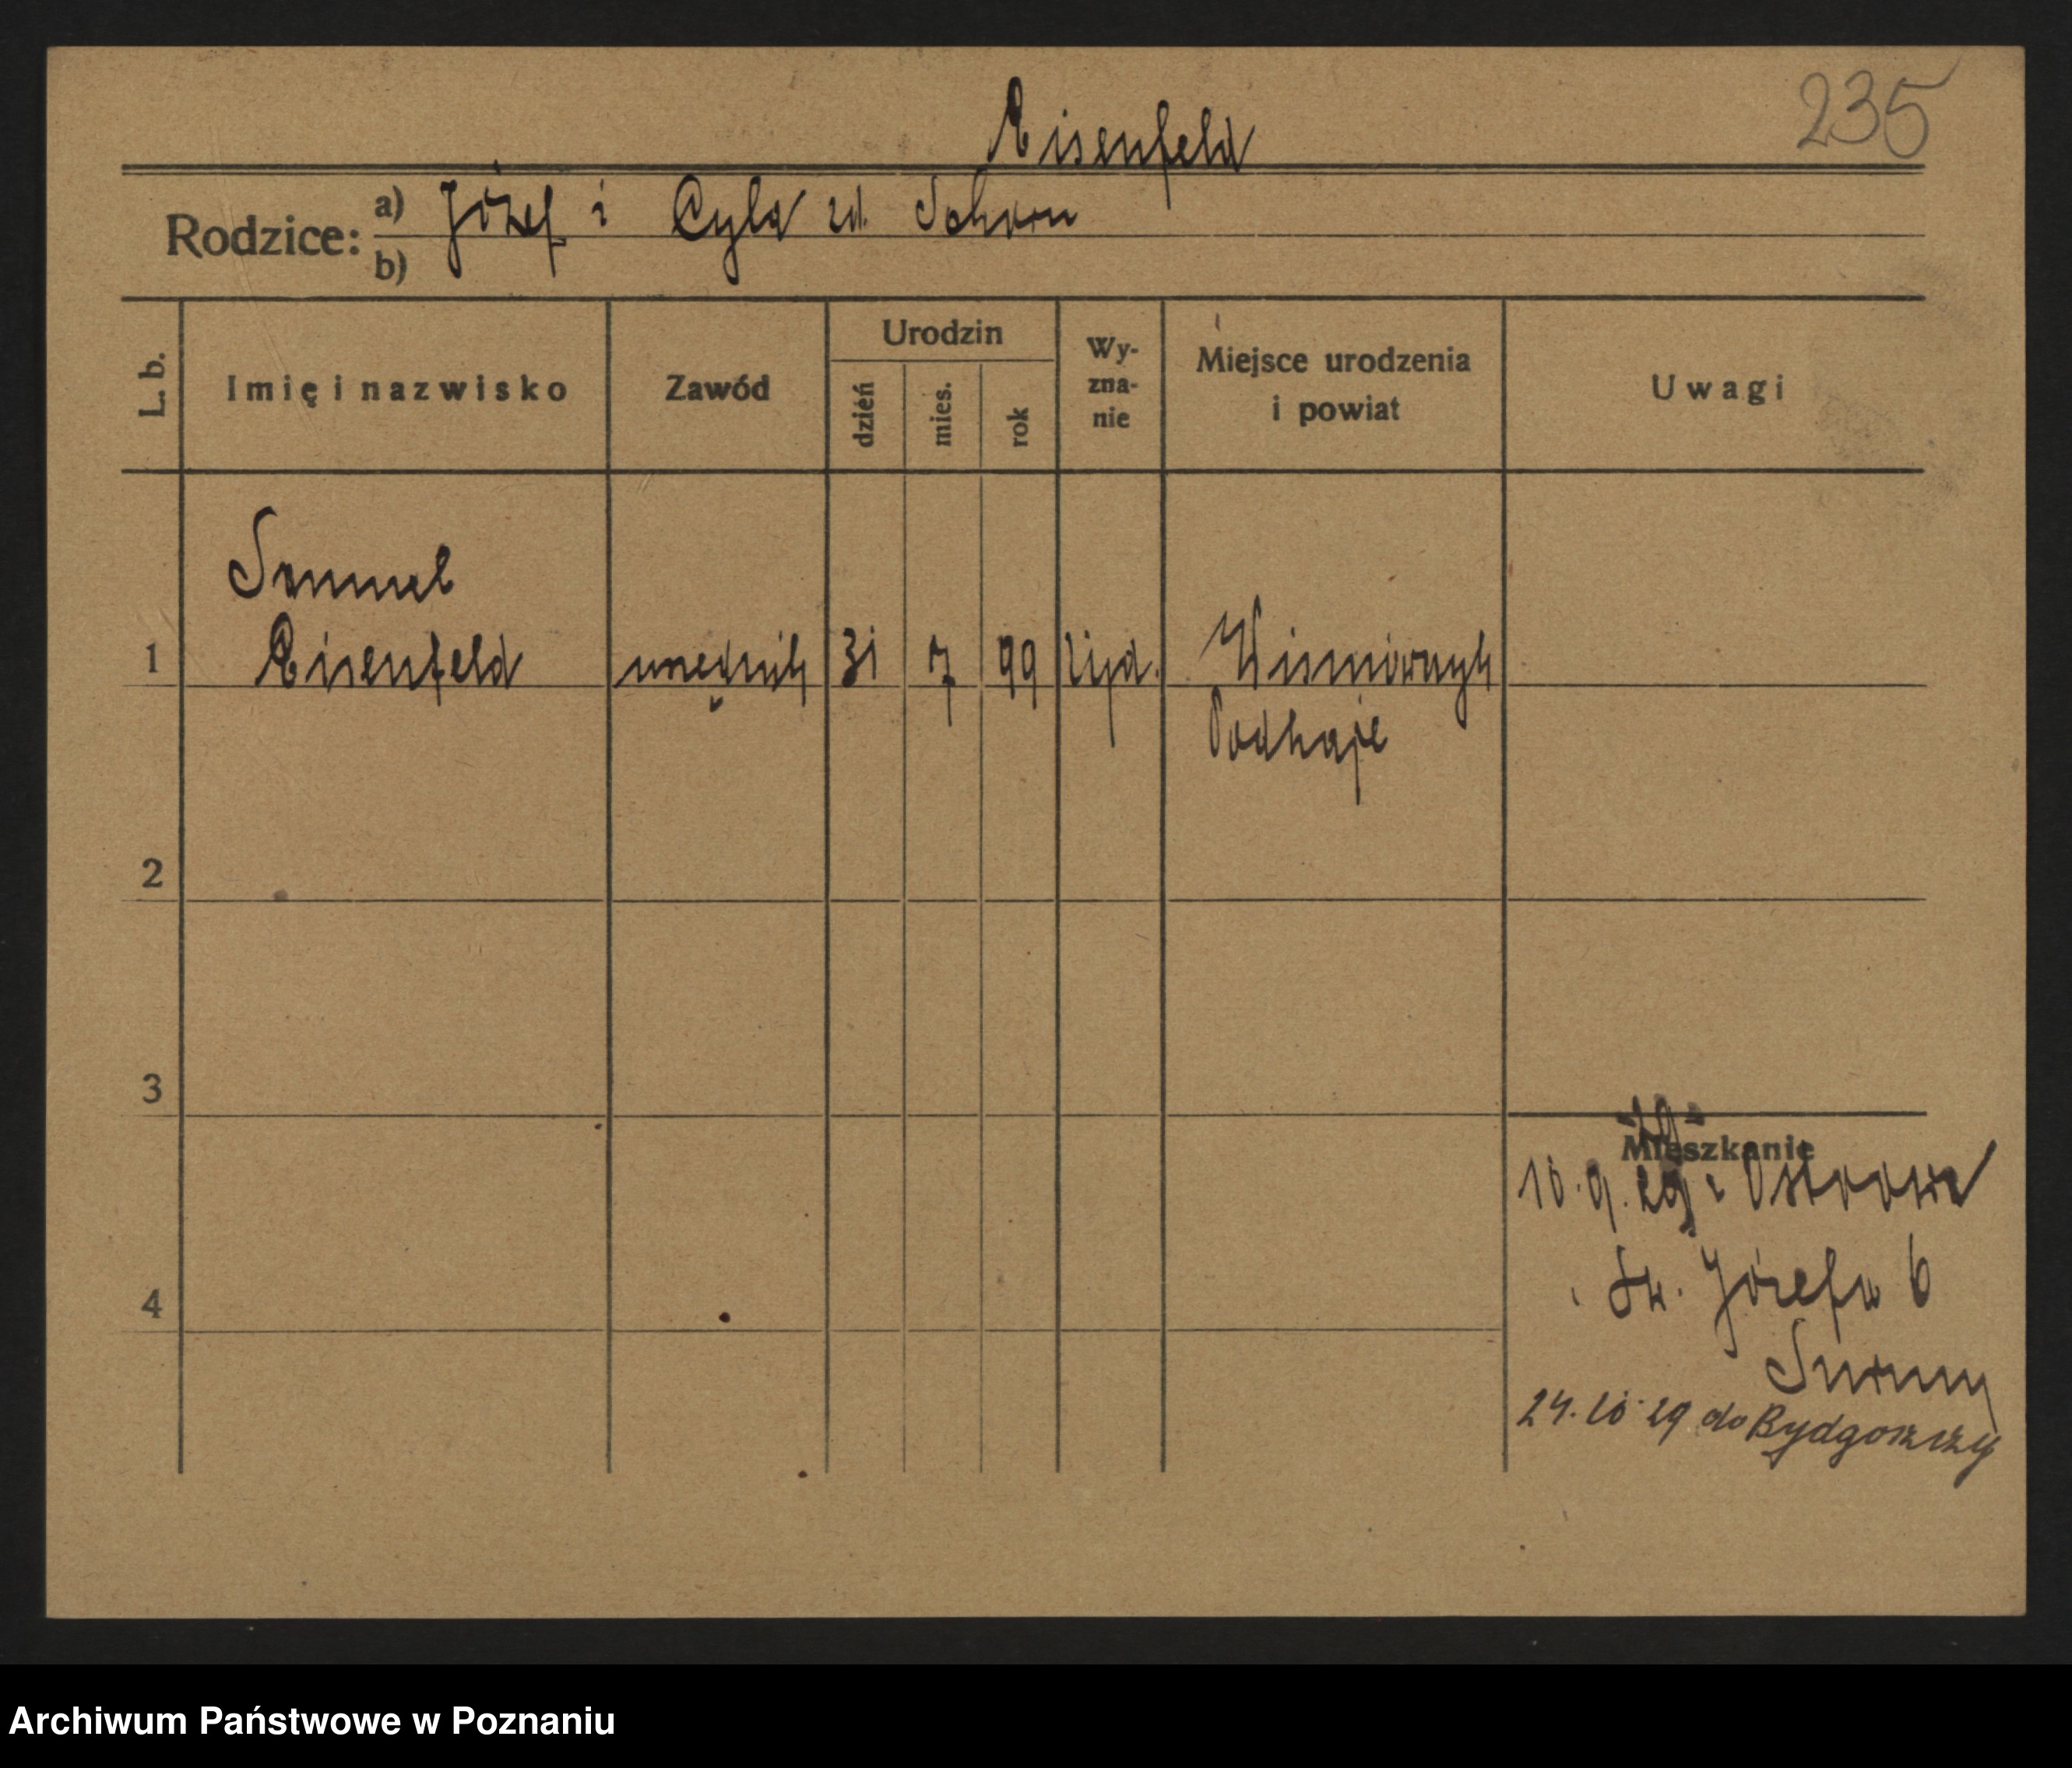 235
Eisenfeld
Rodzice: a) Józef i Cyla zd. Schorr
b)
L. b.
Imię i nazwisko
Zawód
Urodzin
dzień
mies.
rok
Wy-
zna-
nie
Miejsce urodzenia
i powiat
Uwagi
Samuel
1 Eisenfeld urzędnik 31 7 99 żyd. Wiśniowczyk
Podhajce
2
3
Mieszkanie
10.9.29 z Ostrowa
Św. Józefa 6
4
24.10.29 do Bydgoszczy
Archiwum Państwowe w Poznaniu